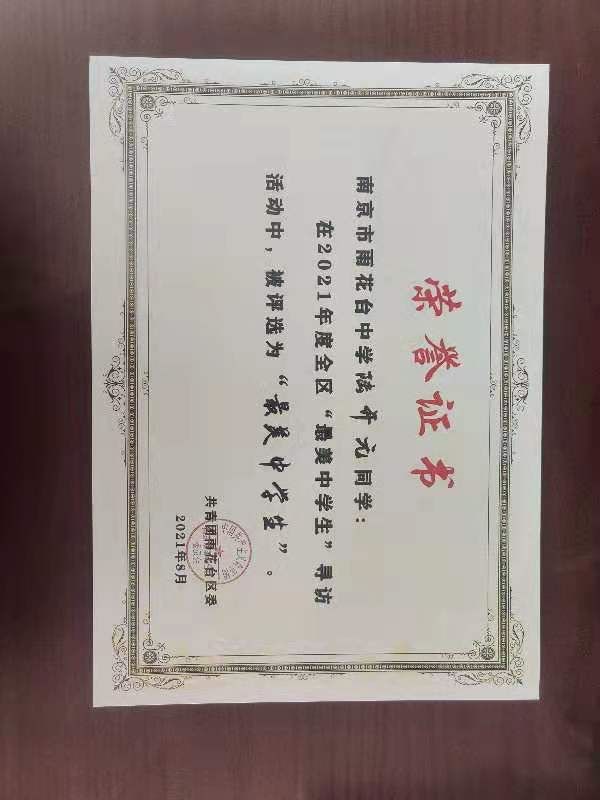 荣誉证书
南京市雨花台中学陆开元同学：
在2021年度全区“最美中学生”寻访
活动中，被评选为“最美中学生”。
共青团雨花台区委
2021年8月